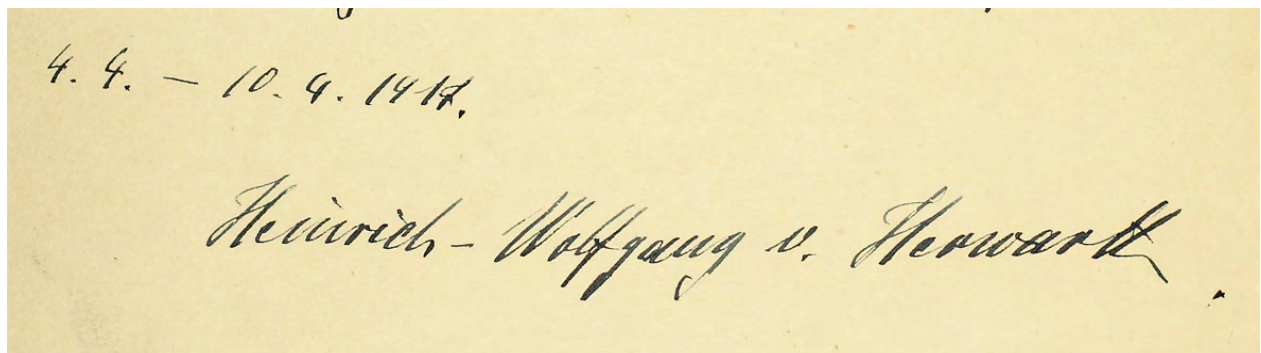 4. 4. – 10. 4. 1917.
Heinrich-Wolfgang v. Herwarth.